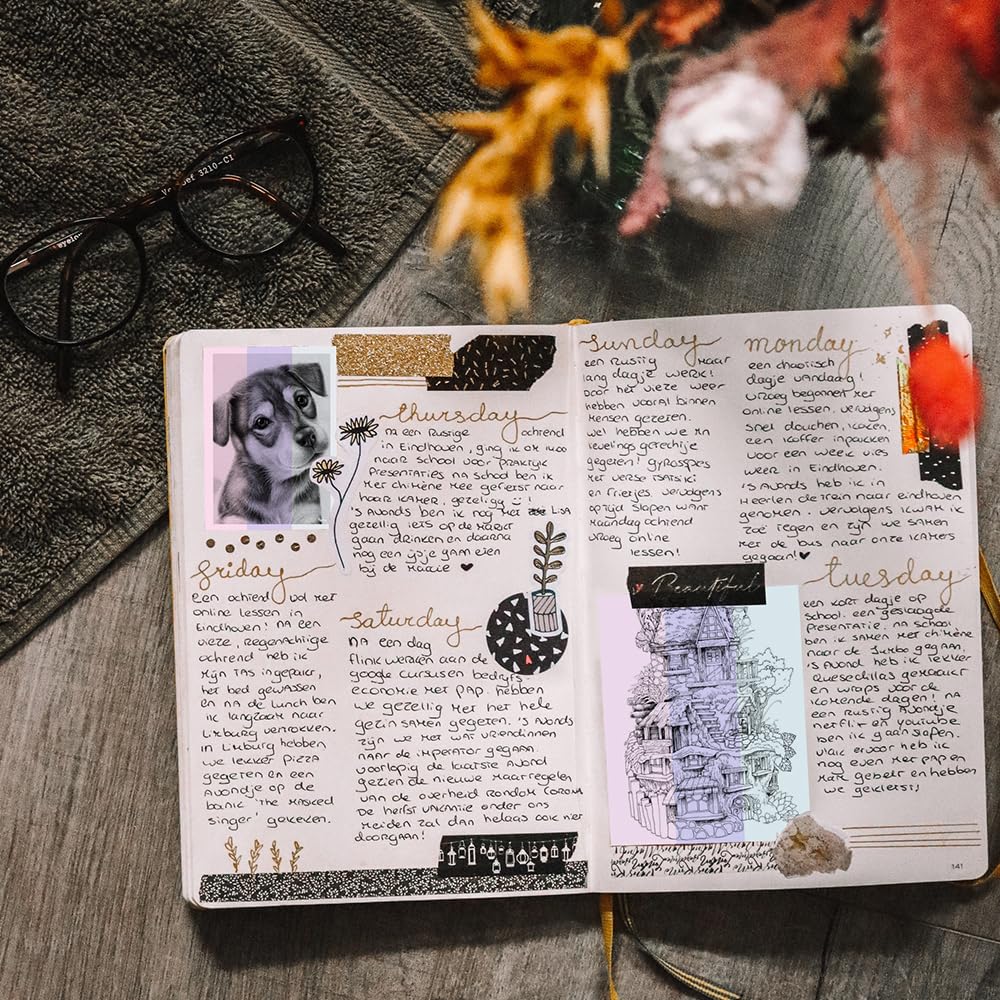 3210-C1
thursday
na een rustige ochtend
in Eindhoven, ging ik om
naar school voor praktijk
presentaties na school ben ik
met chimène mee gefietst naar
haar kamer, gezellig :)!
's avonds ben ik nog met Lisa
gezellig iets op de markt
gaan drinken en daarna
nog een ijsje gam eten
bij de
friday
een ochtend vol met
online lessen in
Eindhoven! na een
vieze, regenachtige
ochtend heb ik
mijn tas ingepakt,
het bed gewassen
en na de lunch ben
ik langzaam naar
Limburg vertrokken.
in Limburg hebben
we lekker pizza
gegeten en een
avondje op de
bank 'the masked
singer' gekeken.
saturday
na een dag
flink werken aan de
google cursus en bedrijfs
economie met pap. hebben
we gezellig met het hele
gezin samen gegeten. 's avonds
zijn we met wat vriendinnen
naar de imperator gegaan
voorlopig de laatste avond
gezien de nieuwe maatregelen
van de overheid rondom corona
de herfst vakantie onder ons
meiden zal dan helaas ook niet
doorgaan!
sunday
een rustig maar
lang dagje werk!
door het vieze weer
hebben vooral binnen
mensen gezeten.
we hebben we mn
lievelings gerechtje
gegeten! gyrosspies
met verse tsatsiki
en frietjes. vervolgens
op tijd slapen want
maandag ochtend
vroeg online
lessen!
monday
een chaotisch
dagje vandaag!
vroeg begonnen met
online lessen. vervolgens
snel douchen, koken,
een koffer inpakken
voor een week vies
weer in Eindhoven.
's avonds heb ik in
Heerlen de trein naar eindhoven
genomen. vervolgens kwam ik
zoë tegen en zijn we samen
met de bus naar onze kamers
gegaan!
Beautiful
tuesday
een kort dagje op
school. een geslaagde
presentatie. na school
ben ik samen met chimène
naar de Jumbo gegaan,
's avond heb ik lekker
quesedillas gemaakt
en wraps voor de
komende dagen! na
een rustig avondje
netflix en youtube
ben ik gaan slapen.
vlak ervoor heb ik
nog even met pap en
mam gebeld en hebben
we gekletst!
141